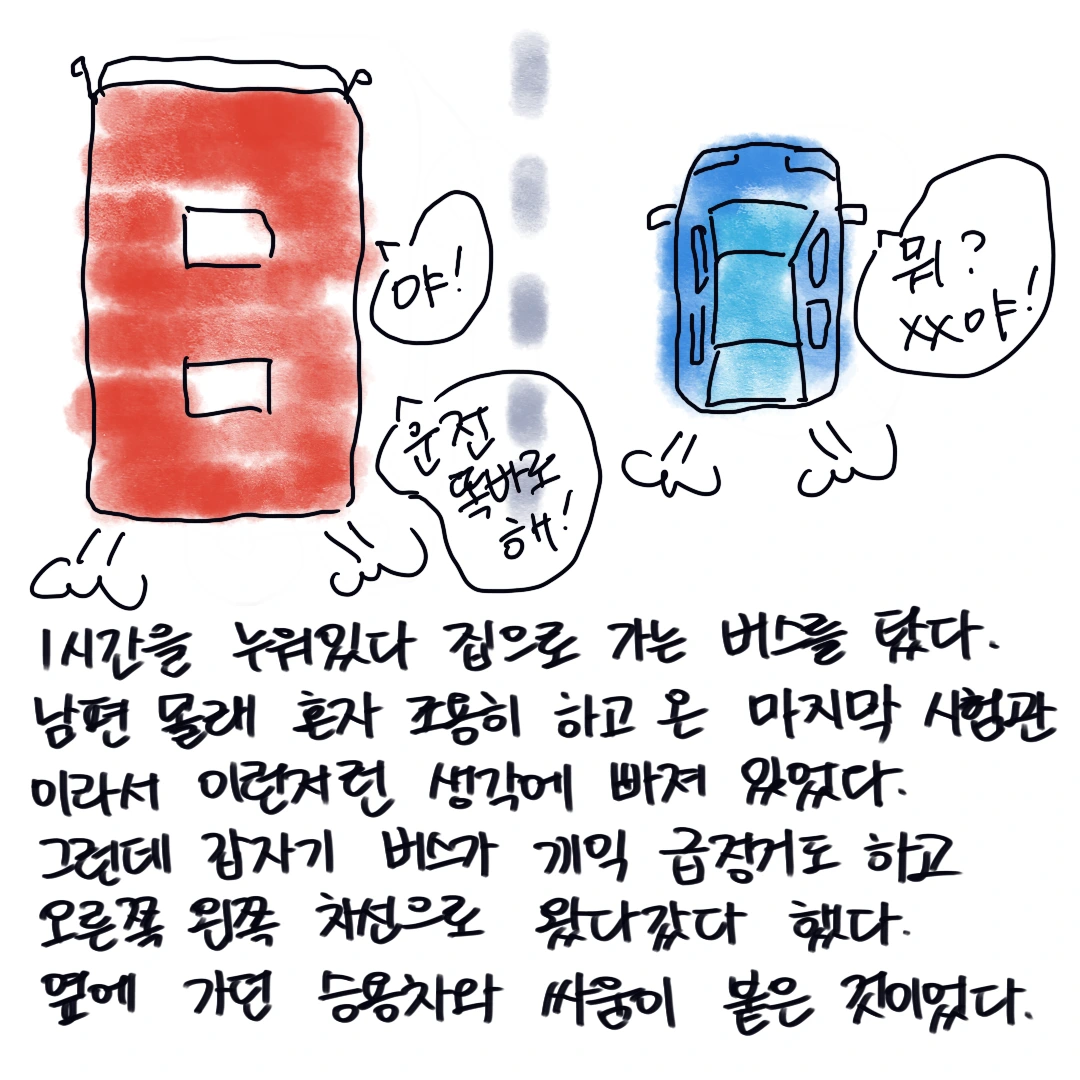 야!
뭐?
xx야!
운전
똑바로
해!
1시간을 누워있다 집으로 가는 버스를 탔다.
남편 몰래 혼자 조용히 하고 온 마지막 시험관
이라서 이런저런 생각에 빠져 있었다.
그런데 갑자기 버스가 끼익 급정거도 하고
오른쪽 왼쪽 차선으로 왔다갔다 했다.
옆에 가던 승용차와 싸움이 붙은 것이었다.